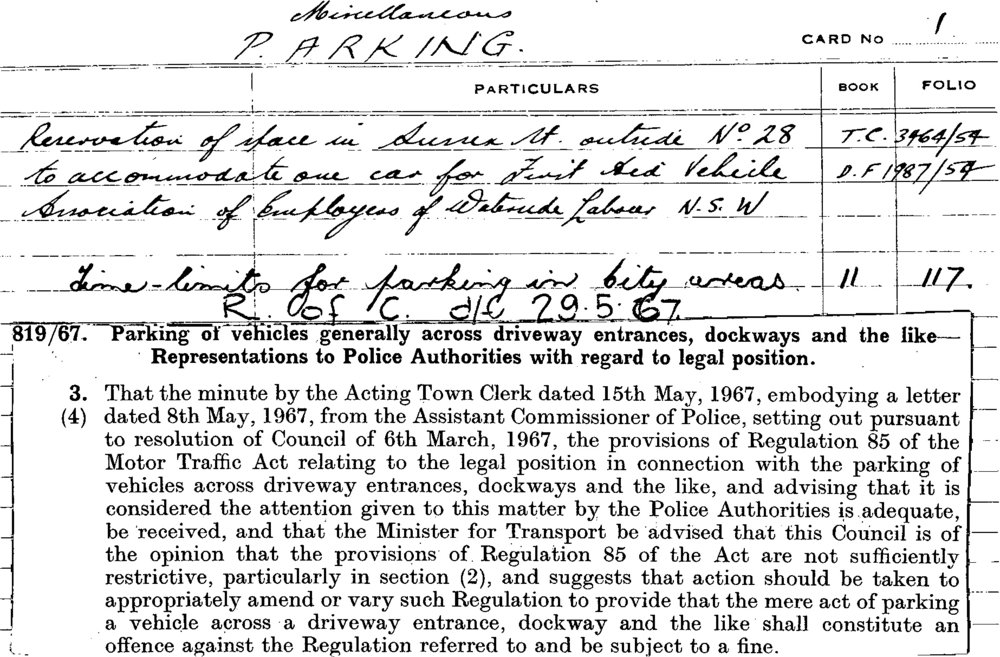 Miscellaneous
PARKING.
CARD No 1
PARTICULARS BOOK FOLIO
Reservation of space in Sussex St. outside No 28 T.C. 3464/54
to accommodate one car for First Aid Vehicle D.F 1987/54
Association of Employers of Waterside Labour N.S.W
Time-limits for parking in City areas 11 117.
R. of C. d/d 29.5.67.
819/67. Parking of vehicles generally across driveway entrances, dockways and the like—
Representations to Police Authorities with regard to legal position.
3. That the minute by the Acting Town Clerk dated 15th May, 1967, embodying a letter
(4) dated 8th May, 1967, from the Assistant Commissioner of Police, setting out pursuant
to resolution of Council of 6th March, 1967, the provisions of Regulation 85 of the
Motor Traffic Act relating to the legal position in connection with the parking of
vehicles across driveway entrances, dockways and the like, and advising that it is
considered the attention given to this matter by the Police Authorities is adequate,
be received, and that the Minister for Transport be advised that this Council is of
the opinion that the provisions of Regulation 85 of the Act are not sufficiently
restrictive, particularly in section (2), and suggests that action should be taken to
appropriately amend or vary such Regulation to provide that the mere act of parking
a vehicle across a driveway entrance, dockway and the like shall constitute an
offence against the Regulation referred to and be subject to a fine.